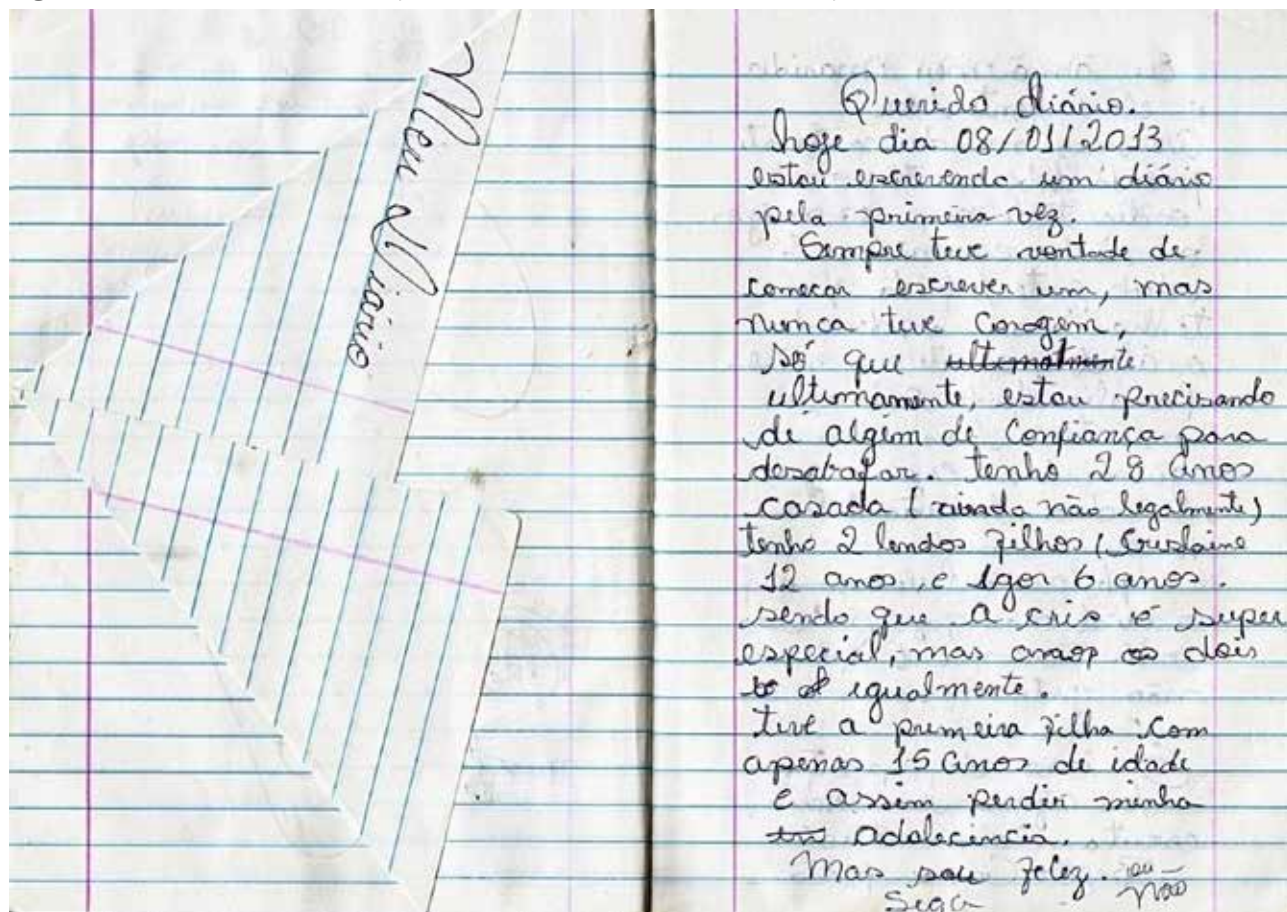 Meu Diário
Querido diário.
hoje dia 08/01/2013
estou escrevendo um diário
pela primeira vez.
Sempre tive vontade de
começar escrever um, mas
nunca tive coragem,
só que ultimatmente
ultimamente, estou precisando
de algem de confiança para
desabafar. tenho 28 anos
casada (ainda não legalmente)
tenho 2 lendos filhos (Crislaine
12 anos, e Igor 6 anos.
sendo que a cris é super
especial, mas amos os dois
igualmente.
tive a primeira filha com
apenas 15 anos de idade
e assim perdir minha
adolecincia.
Mas sou felez. ou não